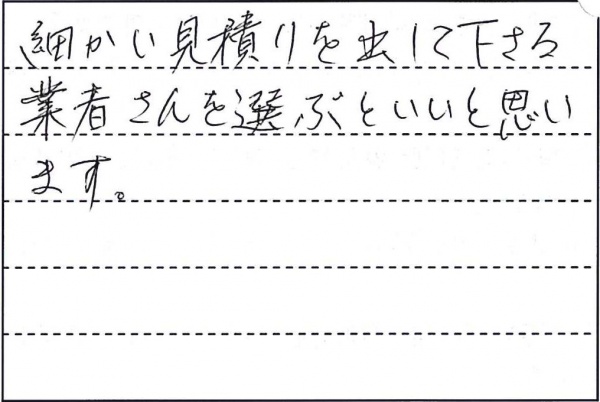 細かい見積りを出して下さる
業者さんを選ぶといいと思い
ます。